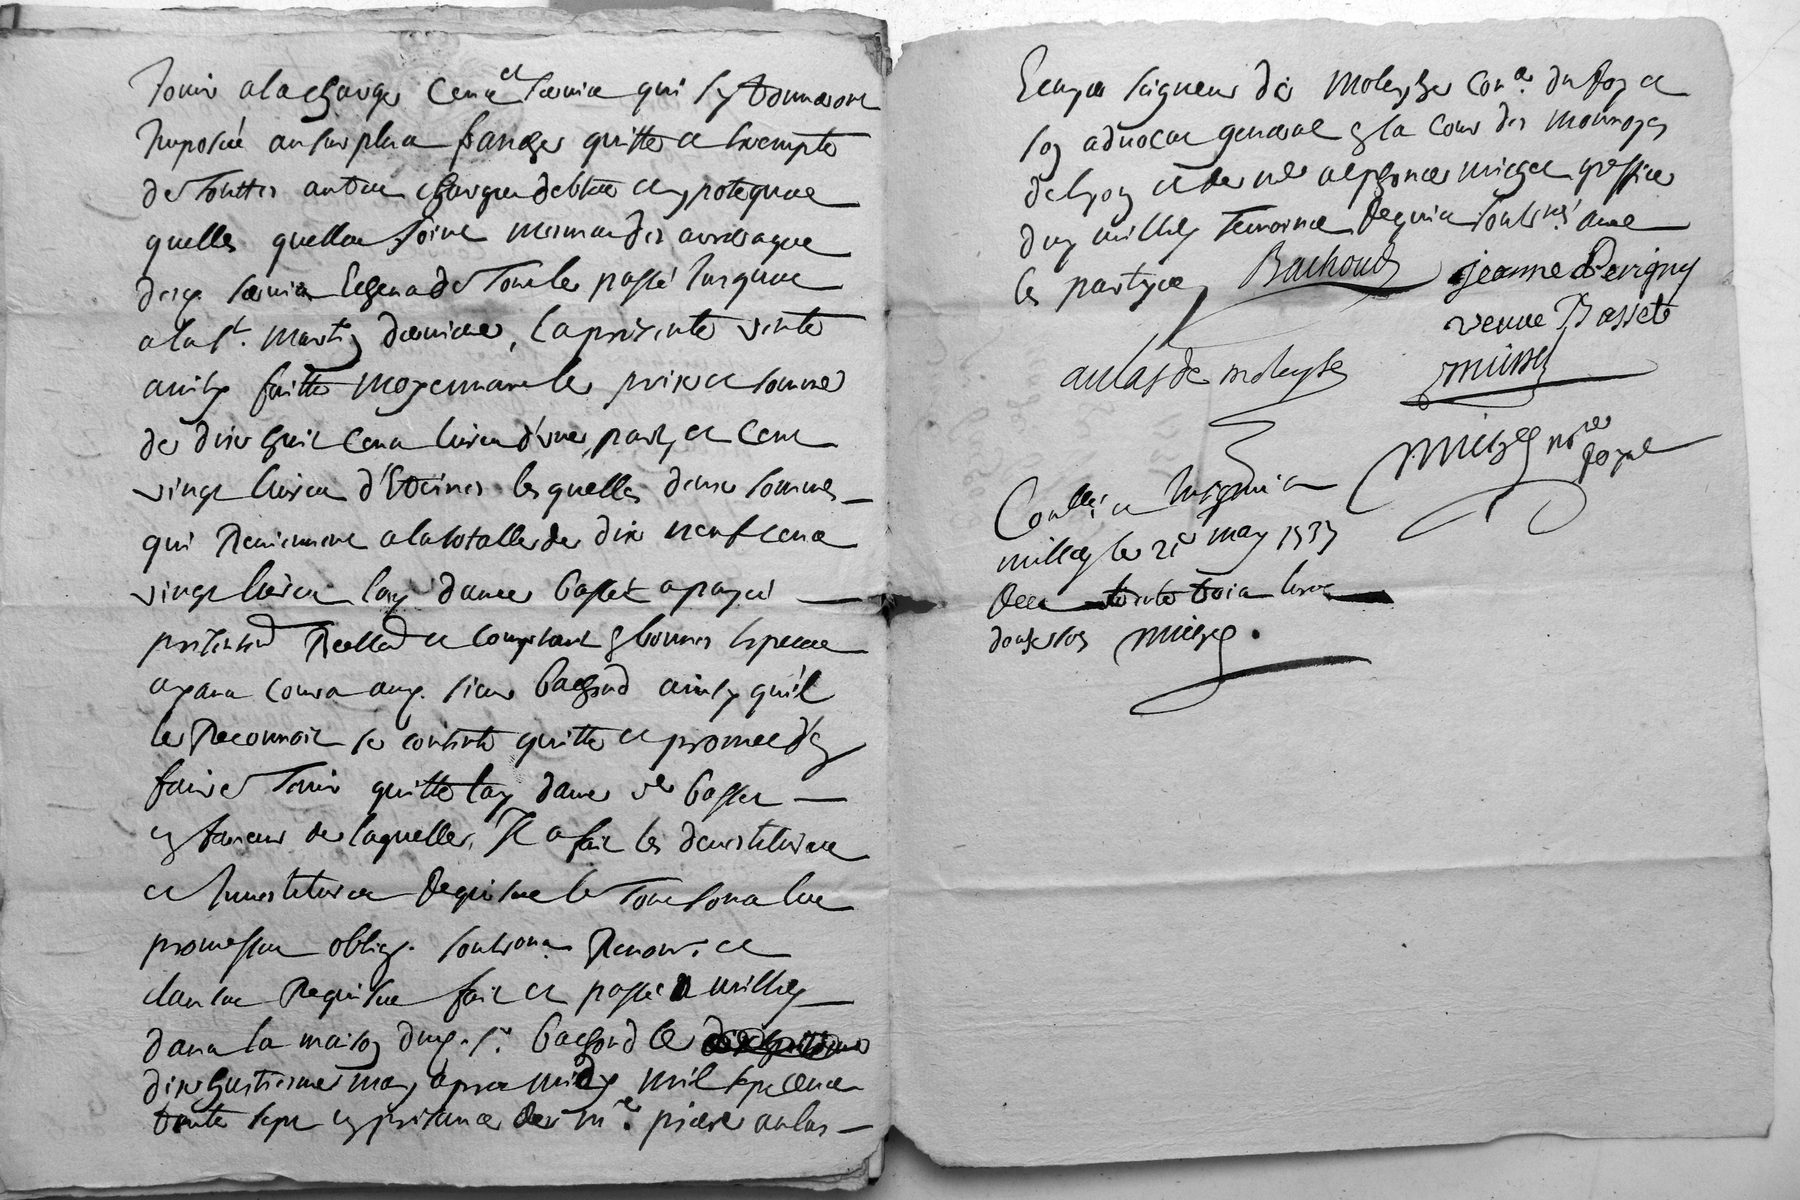 Jouir a la charge cens et servis qui s'y trouveront
Imposée au surplus franche quitte et exempte
de Touttes autres charges debtes et ypoteques
quelles quelles soient mesmes des arrerages
desd. servis Legende Tout le passé Jusques
a la st. Martin derniere, la presente vente
ainsy faitte moyennant le prix et somme
de dix huit cent livres d'une part, et cent
vingt livres d'Etreines lesquelles deux sommes
qui Reviennent a la totalle de dix neuf cent
vingt livres lad. dame basset a payé
presentemt Reellemt et comptant en bonnes especes
ayant cours aud. sieur bachoud ainsy qu'il
le Reconnoit se contente quitte et promet d'en
faire Tenir quitte lad. dame ve basset
en faveur de laquelle, Il a fait les devestitures
et Investitures Requises le Tout sous les
promesses oblig. soubms. Renon. et
clauses Requises fait et passé a millery
dans la maison dud. sr. bachoud le
dix huitieme may apres midy mil sept cent
trente sept en presence de mre. pierre aulas
Ecuyer seigneur de moleyze conr. du Roy et
son advocat general en la cour des monnoyes
de lyon et de me alphonce michel greffier
dud millery Temoins Requis soubsnés avec
les partyes Bachoud jeanne Perigny
veuve Basset
aulas de moleyse michel
michel nore royal
Conllé et Insinué a
millery le 21e may 1737
Recu trente trois livres
douze sols michel.